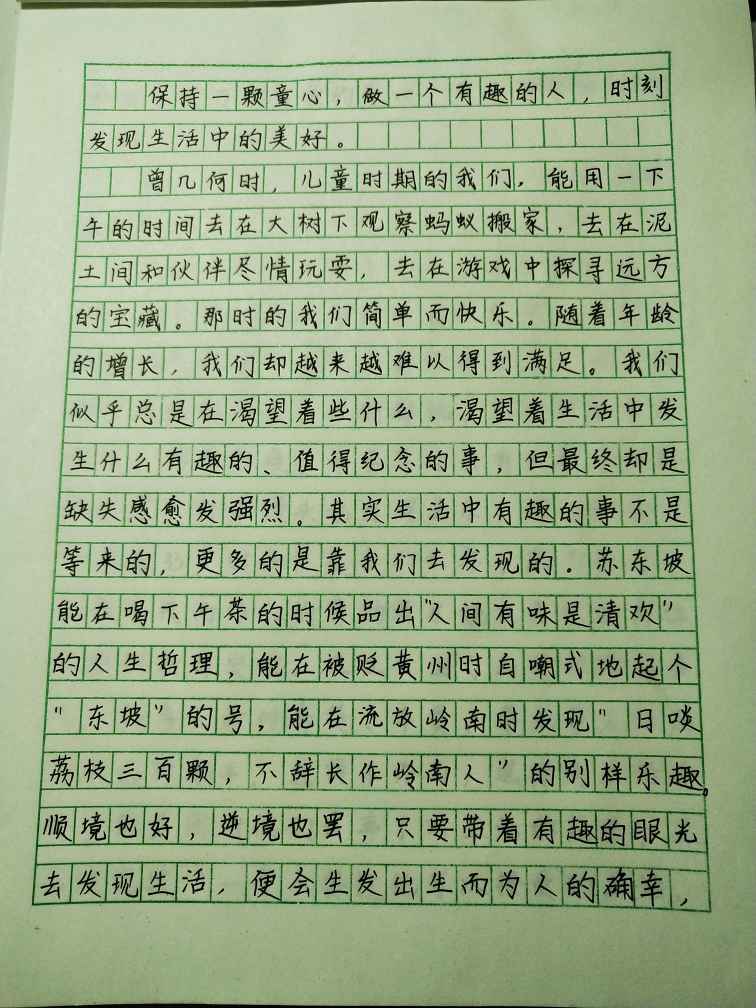 保持一颗童心，做一个有趣的人，时刻
发现生活中的美好。
曾几何时，儿童时期的我们，能用一下
午的时间去在大树下观察蚂蚁搬家，去在泥
土间和伙伴尽情玩耍，去在游戏中探寻远方
的宝藏。那时的我们简单而快乐。随着年龄
的增长，我们却越来越难以得到满足。我们
似乎总是在渴望着些什么，渴望着生活中发
生什么有趣的、值得纪念的事，但最终却是
缺失感愈发强烈。其实生活中有趣的事不是
等来的，更多的是靠我们去发现的。苏东坡
能在喝下午茶的时候品出“人间有味是清欢”
的人生哲理，能在被贬黄州时自嘲式地起个
“东坡”的号，能在流放岭南时发现“日啖
荔枝三百颗，不辞长作岭南人”的别样乐趣。
顺境也好，逆境也罢，只要带着有趣的眼光
去发现生活，便会生发出生而为人的确幸，